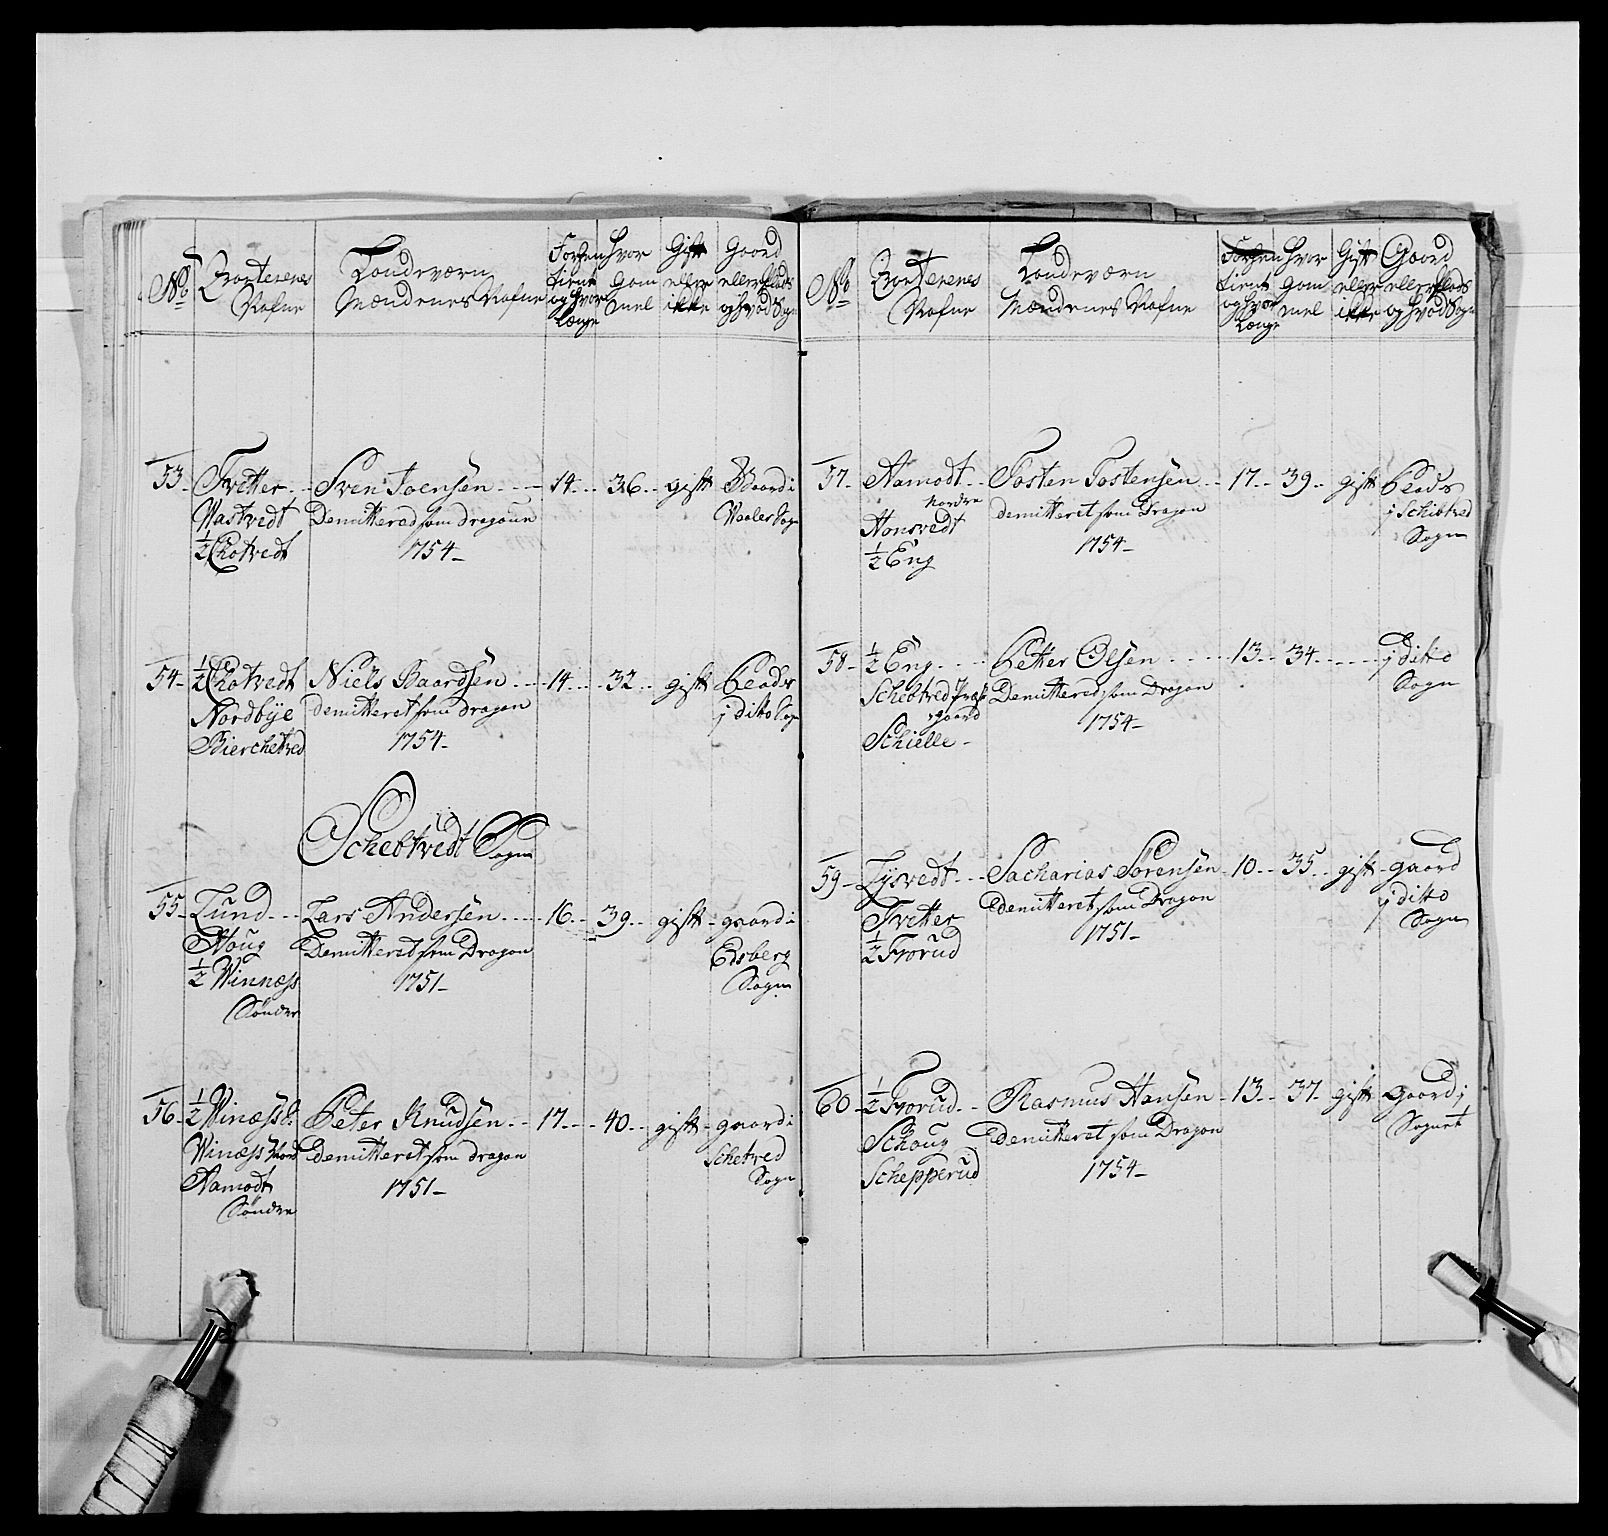 No
Qvarterenes
Nafne
Landeværn
Mændenes Nafne
Forhen
tient
og hvor
Længe
hvor
Gam
mel
Gift
eller
ikke
Gaard
eller Plads
og hvad Sogn
53
Tvetter
Wastvedt
1/2 Chotvedt
Sven Joensen
Demitterad som dragoun
1754
14
36
gift
Gaard i
Waaler Sogn
54
1/2 Chotvedt
Nordbÿe
Bierchetved
Niels Baardsen
Demitteret som dragon
1754
14
32
gift
Plads
i ditto Sogn
Schebtvedt Sogn
55
Lund
Houg
1/2 Winnæss
Søndre
Lars Andersen
Demitteret som Dragon
1751
16
39
gift
gaard i
Edsberg
Sogn
56
1/2 Winæss S:
Winæss Nord
Aamodt
Søndre
Peter Knudsen
Demitteret som dragon
1751
17
40
gift
gaard i
Schetved
Sogn
No
Qvarterenes
Nafne
Landeværn
Mændenes Nafne
Forhen
tient
og hvor
Længe
hvor
Gam
mel
Gift
eller
ikke
Gaard
eller Plads
og hvad Sogn
57
Aamodt
nordre
Honsvedt
1/2 Eng
Tosten Tostensen
demitteret som Dragon
1754
17
39
gift
Plads
i Schibtved
Sogn
58
1/2 Eng
Schebtved Præst
gaard
Schielle
Petter Olsen
Demitteret som Dragon
1754
13
34
i ditto
Sogn
59
Lysvedt
Tvetter
1/2 Frorud
Sacharias Sørensen
Demitteret som Dragon
1751
10
35
gift
gaard
i ditto
Sogn
60
1/2 Frorud
Schoug
Schepperud
Rasmus Hansen
Demitteret som Dragon
1754
13
37
gift
gaard i
Sognet